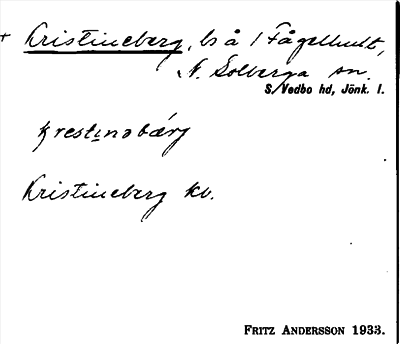 + Kristineberg, ls å 1 Fågelhult,
N. Solberga sn.
S. Vedbo hd, Jönk. l.
krestinəbärj
Kristineberg kv.
FRITZ ANDERSSON 1933.